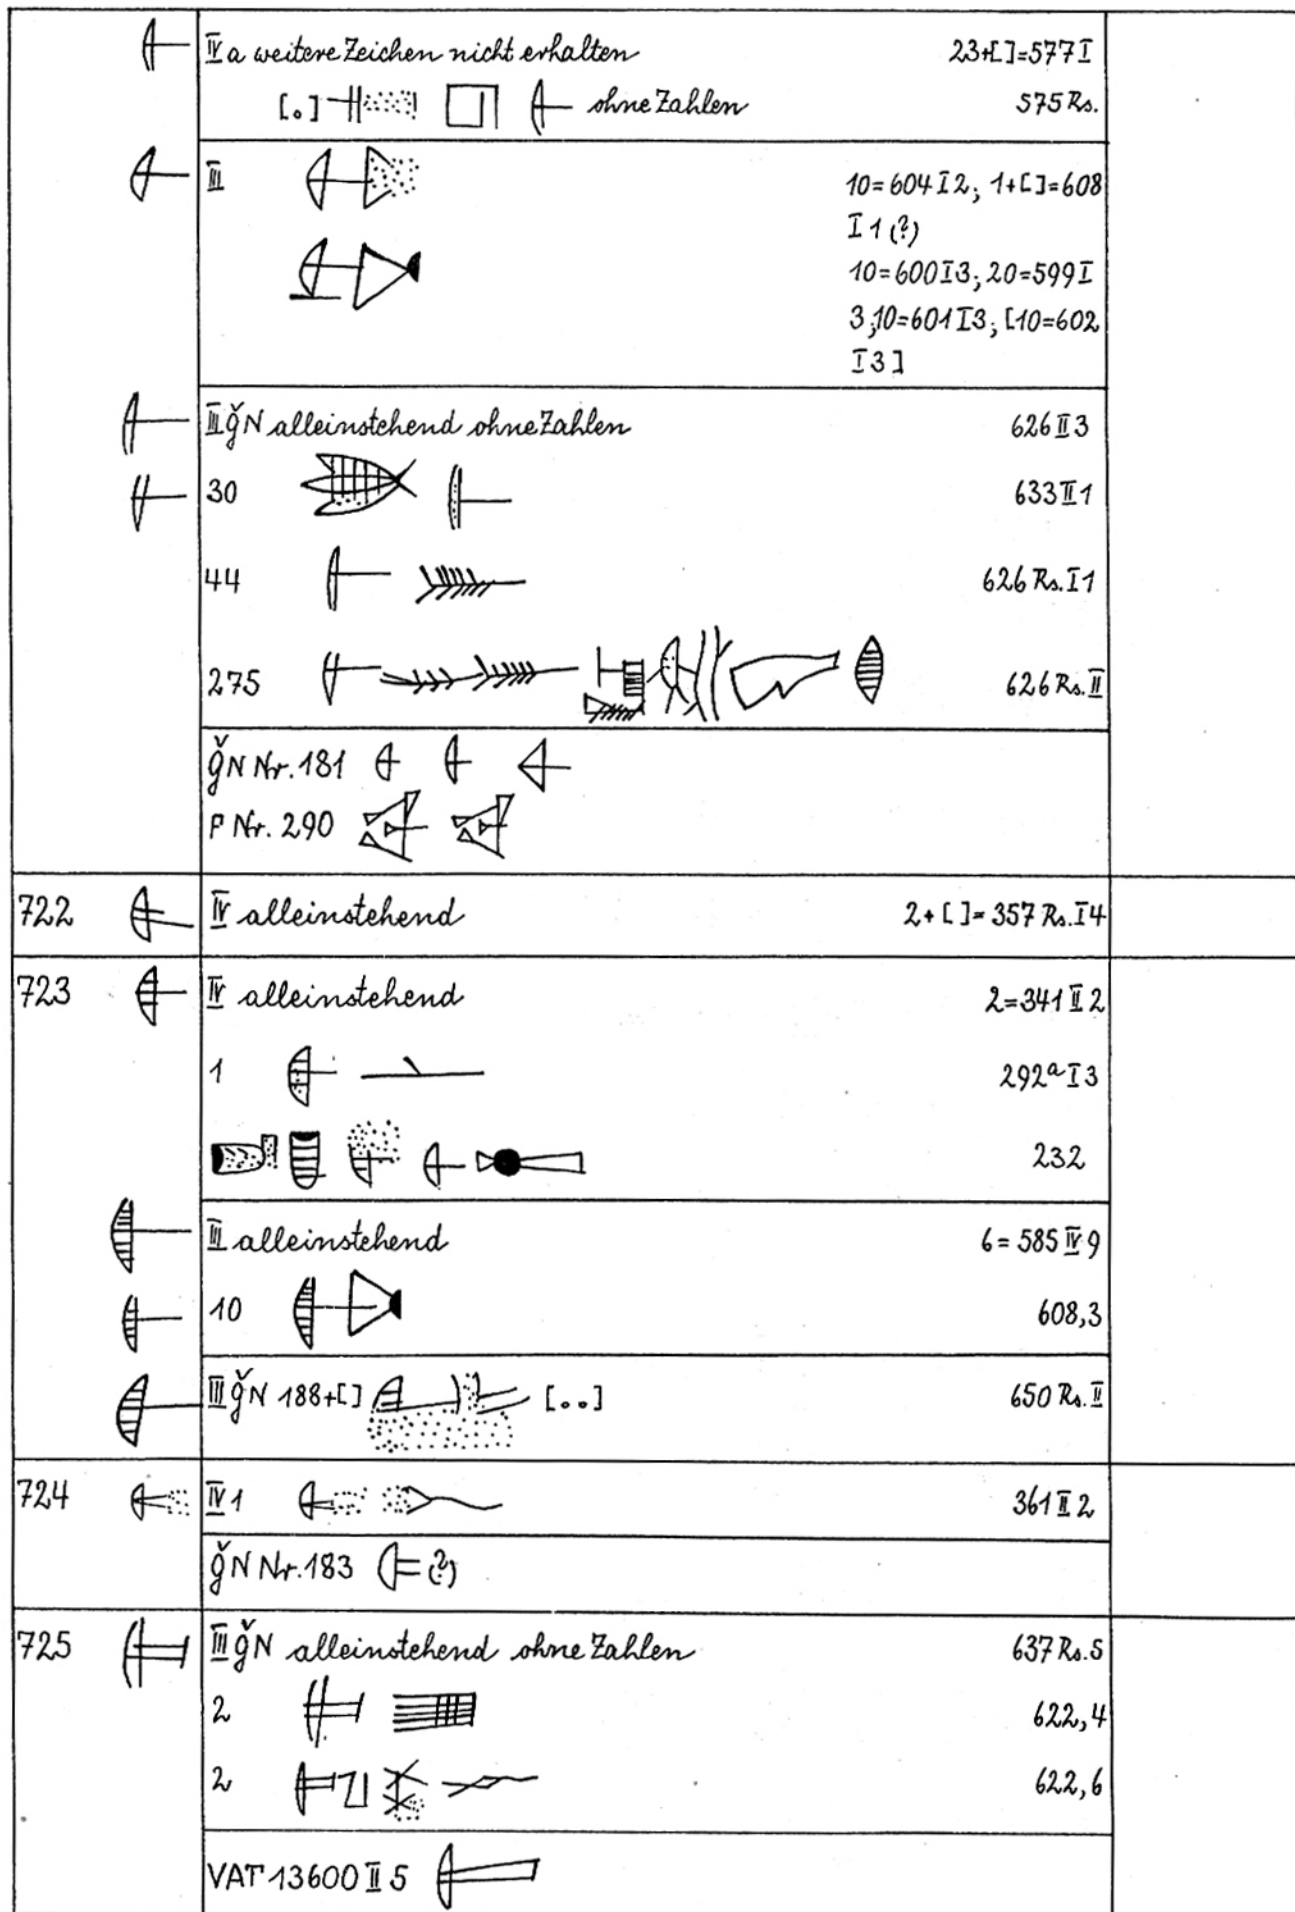 IVa weitere Zeichen nicht erhalten 23+[ ]=577 I
[.] ohne Zahlen 575 Rs.
III 10=604 I 2; 1+[ ]=608
I 1 (?)
10=600 I 3; 20=599 I
3; 10=601 I 3; [10=602
I 3]
III ǧN alleinstehend ohne Zahlen 626 II 3
30 633 II 1
44 626 Rs. I 1
275 626 Rs. II
ǧN Nr. 181
F Nr. 290
722 IV alleinstehend 2+[ ]=357 Rs. I 4
723 IV alleinstehend 2=341 II 2
1 292a I 3
232
III alleinstehend 6=585 IV 9
10 608,3
III ǧN 188+[ ] [..] 650 Rs. II
724 IV 1 361 II 2
ǧN Nr. 183 (?)
725 III ǧN alleinstehend ohne Zahlen 637 Rs. 5
2 622,4
2 622,6
VAT 13600 II 5